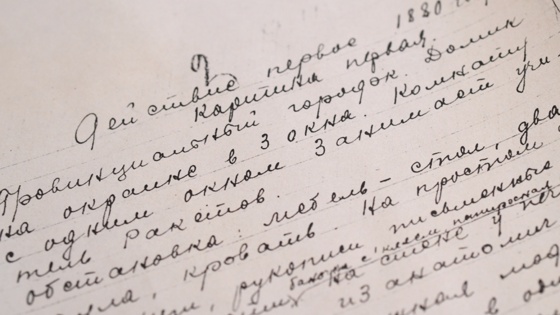 Действие первое 1880 г
Картина первая.
Провинциальный городок. Домик
на окраине в 3 окна. Комнату
с одним окном занимает учи
тель Ракетов.
обстановка: мебель – стол, два
кровать. На простом
рукописи письменные
банка с клеем, папиросная
На стене у
из анатомич